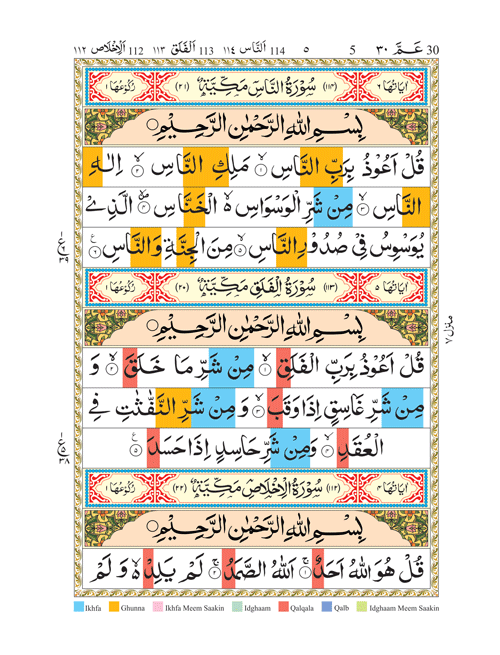 30 عَمَّ ٣٠ 5 ٥ 114 اَلنَّاس ١١٤ 113 اَلْفَلَق ١١٣ 112 اَلْاِخْلَاص ١١٢
اٰيَاتُهَا ٦ (١١٤) سُوْرَةُ النَّاسِ مَكِّيَّةٌ (٢١) رُكُوْعُهَا ١
بِسْمِ اللّٰهِ الرَّحْمٰنِ الرَّحِيْمِ
قُلْ اَعُوْذُ بِرَبِّ النَّاسِ ۙ ١ مَلِكِ النَّاسِ ۙ ٢ اِلٰهِ
النَّاسِ ۙ ٣ مِنْ شَرِّ الْوَسْوَاسِ ۵ الْخَنَّاسِ ۪ۙ ٤ الَّذِيْ
يُوَسْوِسُ فِيْ صُدُوْرِ النَّاسِ ۙ ٥ مِنَ الْجِنَّةِ وَالنَّاسِ ٦
اٰيَاتُهَا ٥ (١١٣) سُوْرَةُ الْفَلَقِ مَكِّيَّةٌ (٢٠) رُكُوْعُهَا ١
بِسْمِ اللّٰهِ الرَّحْمٰنِ الرَّحِيْمِ
قُلْ اَعُوْذُ بِرَبِّ الْفَلَقِ ۙ ١ مِنْ شَرِّ مَا خَلَقَ ۙ ٢ وَ
مِنْ شَرِّ غَاسِقٍ اِذَا وَقَبَ ۙ ٣ وَ مِنْ شَرِّ النَّفّٰثٰتِ فِي
الْعُقَدِ ۙ ٤ وَمِنْ شَرِّ حَاسِدٍ اِذَا حَسَدَ ٥
اٰيَاتُهَا ٤ (١١٢) سُوْرَةُ الْاِخْلَاصِ مَكِّيَّةٌ (٢٢) رُكُوْعُهَا ١
بِسْمِ اللّٰهِ الرَّحْمٰنِ الرَّحِيْمِ
قُلْ هُوَ اللّٰهُ اَحَدٌ ۚ ١ اَللّٰهُ الصَّمَدُ ۚ ٢ لَمْ يَلِدْ ۵ وَ لَمْ
منزل ٧
Ikhfa Ghunna Ikhfa Meem Saakin Idghaam Qalqala Qalb Idghaam Meem Saakin